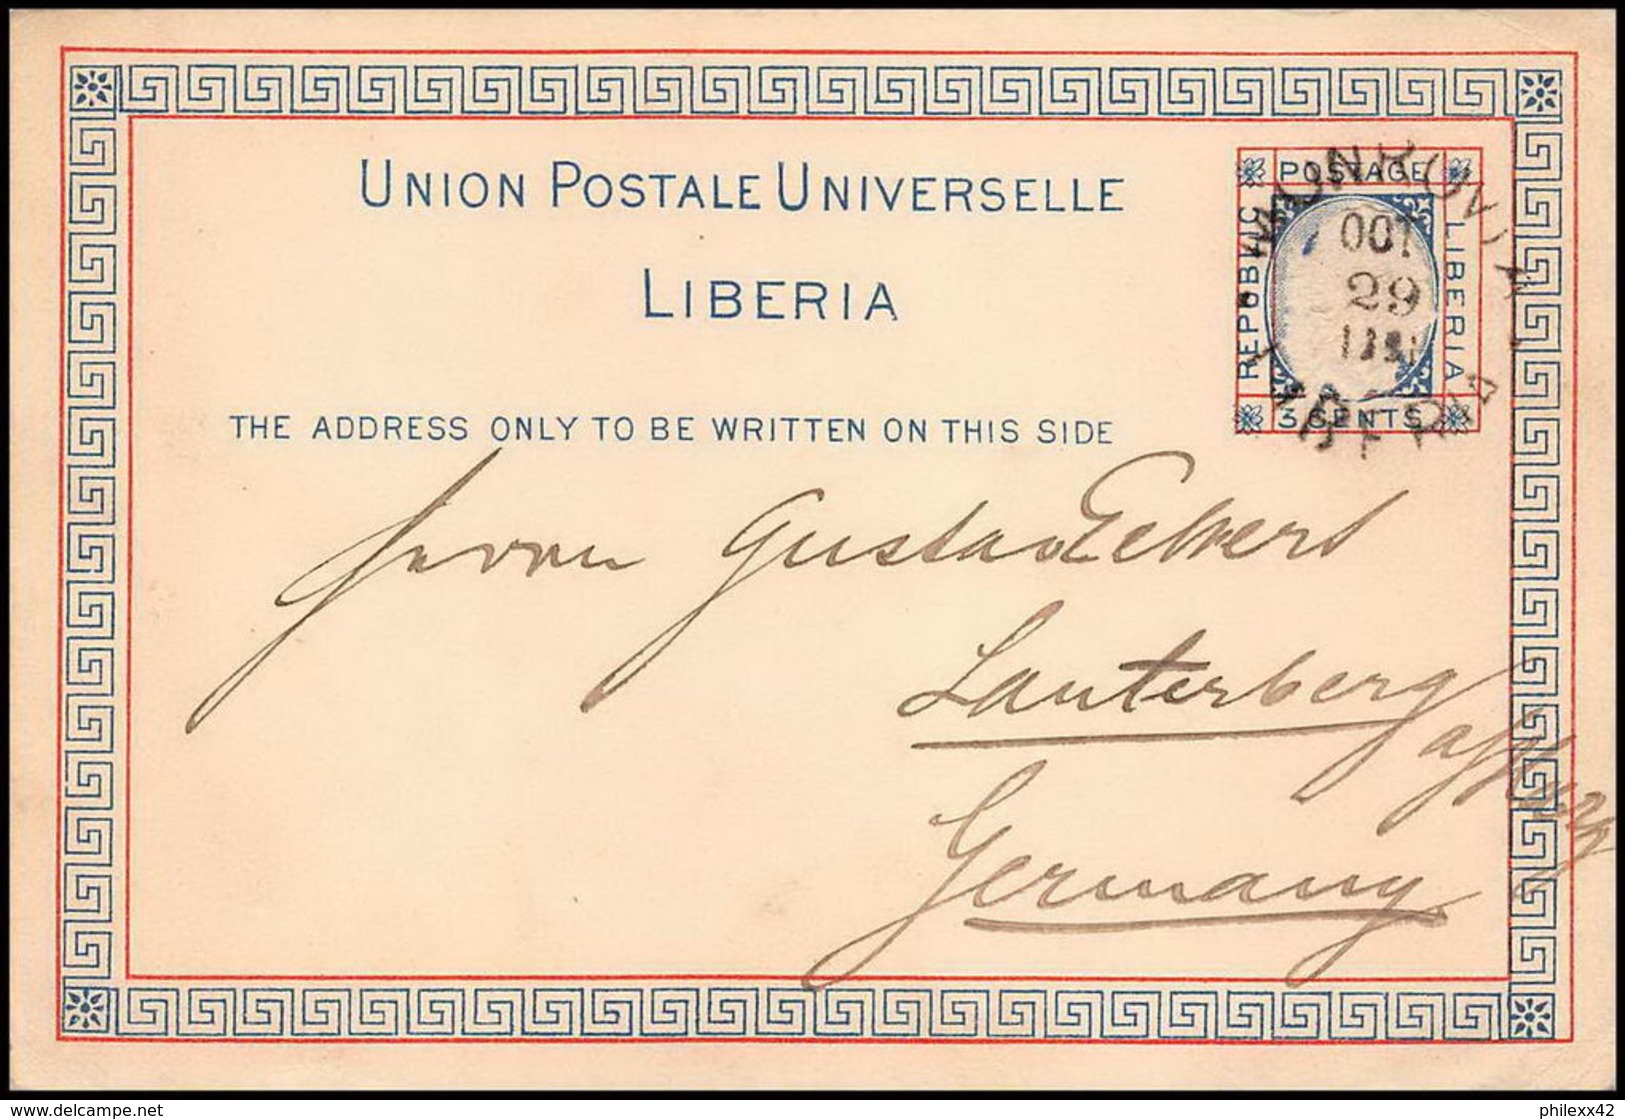 UNION POSTALE UNIVERSELLE
LIBERIA
THE ADDRESS ONLY TO BE WRITTEN ON THIS SIDE
POSTAGE
REPUBLIC
LIBERIA
3 CENTS
MONROVIA
OCT
29
Herrn Gustav Eckers
Lauterberg
Germany
delcampe.net
philexx42